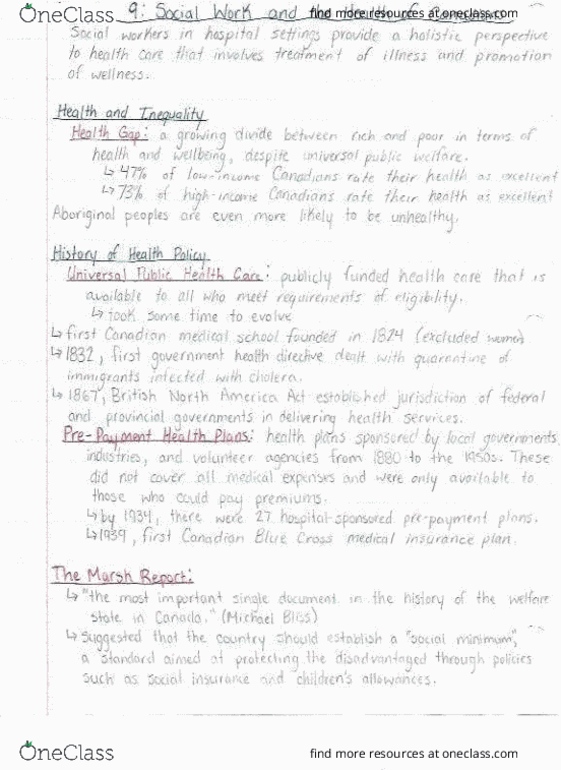 OneClass
find more resources at oneclass.com
9: Social Work and
Social workers in hospital settings provide a holistic perspective
to health care that involves treatment of illness and promotion
of wellness.
Health and Inequality
Health Gap: a growing divide between rich and poor in terms of
health and wellbeing, despite universal public welfare.
↳ 47% of low-income Canadians rate their health as excellent
↳ 73% of high-income Canadians rate their health as excellent
Aboriginal peoples are even more likely to be unhealthy.
History of Health Policy
Universal Public Health Care: publicly funded health care that is
available to all who meet requirements of eligibility.
↳ took some time to evolve
↳ first Canadian medical school founded in 1824 (excluded women)
↳ 1832, first government health directive dealt with quarantine of
immigrants infected with cholera.
↳ 1867, British North America Act established jurisdiction of federal
and provincial governments in delivering health services.
Pre-Payment Health Plans: health plans sponsored by local governments,
industries, and volunteer agencies from 1880 to the 1950s. These
did not cover all medical expenses and were only available to
those who could pay premiums.
↳ by 1934, there were 27 hospital-sponsored pre-payment plans.
↳ 1939, first Canadian Blue Cross medical insurance plan.
The Marsh Report:
↳ "the most important single document in the history of the welfare
state in Canada." (Michael Bliss)
↳ Suggested that the country should establish a "social minimum",
a standard aimed at protecting the disadvantaged through policies
such as social insurance and children's allowances.
OneClass
find more resources at oneclass.com